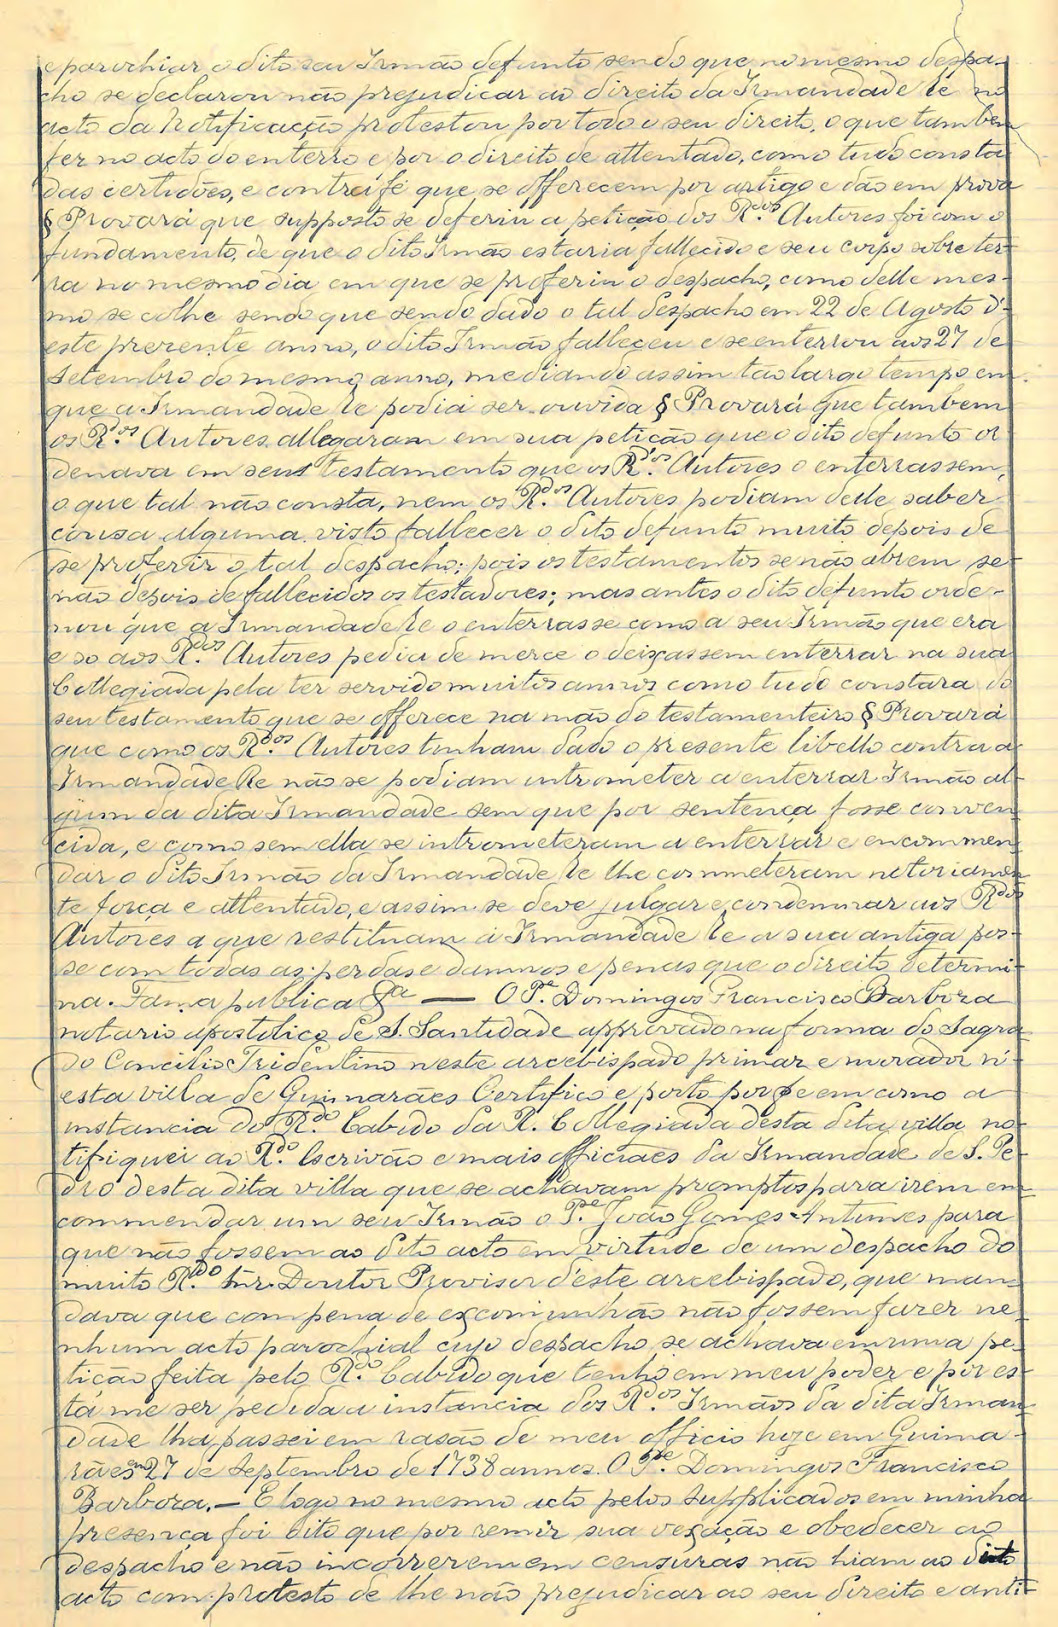 e parochiar o dito seu Irmão defunto sendo que no mesmo despa-
cho se declarou não prejudicar ao direito da Irmandade Re no
acto da Notificação protestou por todo o seu direito, o que tambem
fez no acto do enterro e por o direito de attentado, como tudo consta
das certidões, e contrafé que se offerecem por artigo e dão em prova
§ Provará que supposto se deferiu a petição dos R.dos Autores foi com o
fundamento, de que o dito Irmão estaria fallecido e seu corpo sobre ter-
ra no mesmo dia em que se proferiu o despacho, como delle mes-
mo se colhe sendo que sendo dado o tal despacho em 22 de Agosto d'-
este prezente anno, o dito Irmão falleceu e se enterrou aos 27 de
Setembro do mesmo anno, mediando assim tão largo tempo em
que a Irmandade Re podia ser ouvida § Provará que tambem
os R.dos Autores allegaram em sua petição que o dito defunto or
denava em seu testamento que os R.dos Autores o enterrassem,
o que tal não consta, nem os R.dos Autores podiam delle saber
cousa alguma visto fallecer o dito defunto muito depois de
se proferir o tal despacho; pois os testamentos se não abrem se-
não depois de fallecidos os testadores; mas antes o dito defunto orde-
nou que a Irmandade Re o enterrasse como a seu Irmão que era
e so aos R.dos Autores pedia de merce o deixassem enterrar na sua
Collegiada pela ter servido muitos annos como tudo constara do
seu testamento que se offerece na mão do testamenteiro § Provará
que como os R.dos Autores tinham dado o presente libello contra a
Irmandade Re não se podiam intrometer a enterrar Irmão al-
gum da dita Irmandade sem que por sentença fosse conven
cida, e como sem ella se intrometeram a enterrar e encommen
dar o dito Irmão da Irmandade Re lhe commeteram notoriamen
te força e attentado, e assim se deve julgar e condemnar aos R.dos
Autores a que restituam á Irmandade Re a sua antiga pos-
se com todas as perdas e damnos e penas que o direito determi-
na. Fama publica &a — O P.e Domingos Francisco Barboza
notario apostolico de S. Santidade approvado na forma do Sagra
do Concilio Tridentino neste arcebispado primaz e morador n'-
esta villa de Guimarães Certifico e porto por fe em como a
instancia do R.do Cabido da R. Collegiada desta dita villa no-
tifiquei ao R.do Escrivão e mais officiaes da Irmandade de S. Pe-
dro desta dita villa que se achavam promptos para irem en-
commendar um seu Irmão o P.e João Gomes Antunes para
que não fossem ao dito acto em virtude de um despacho do
muito R.do Snr. Doutor Provisor d'este arcebispado, que man-
dava que com pena de excomunhão não fossem fazer ne-
nhum acto parochial cujo despacho se achava em uma pe-
tição feita pelo R.do Cabido que tenho em meu poder e por es-
ta me ser pedida a instancia dos R.dos Irmãos da dita Irman-
dade lha passei em rasão de meu officio hoje em Guima-
rães em 27 de Septembro de 1738 annos. O P.e Domingos Francisco
Barboza. — E logo no mesmo acto pelos supplicados em minha
presença foi dito que por remir sua vexação e obedecer ao
despacho e não incorrerem em censuras não hiam ao dito
acto com protesto de lhe não prejudicar ao seu direito e anti-